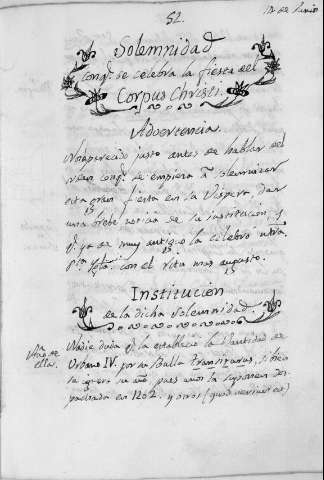 52.
12 de Junio
Solemnidad
conq.e se celebra la fiesta del
Corpus Christi.
Advertencia.
Nos á parecido justo antes de hablar del
conq.e se empieza á solemnizar
esta gran fiesta en la Vispera dar
una brebe noticia de la institucion, y
q.e ya de muy antiguo la celebró ntra
S.ta Igla. con el rito mas augusto.
Institucion
de la dicha solemnidad.
Año de
ella.
Nadie duda q.e la estableció la Santidad de
Urbano IV. por su Bulla Transiturus, si bien
se ignora su año, pues unos la suponen des
pachada en 1262. y otros (quod verius est)